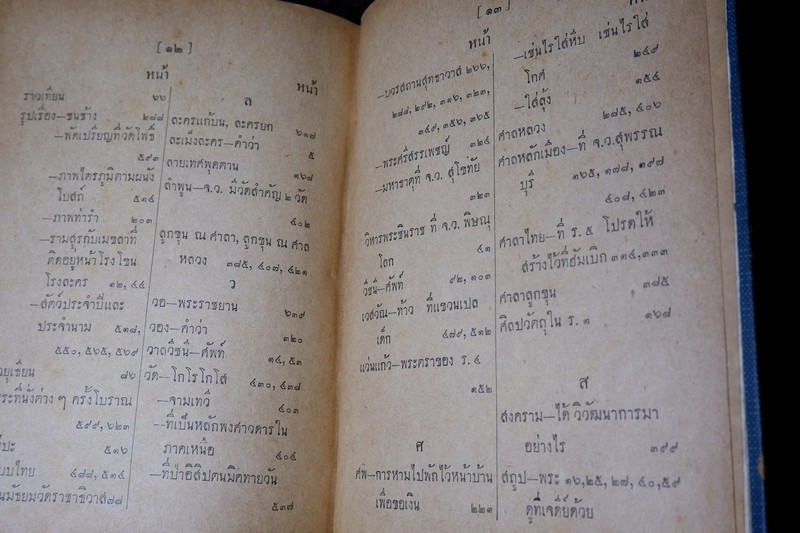 [ ๑๒ ]
หน้า
ราวเทียน ๖๖
รูปเรื่อง—ชนช้าง ๒๘๘
—พัดเปรียญที่วัดโพธิ์
๕๙๓
—ภาพไตรภูมิตามผนัง
โบสถ์ ๕๑๔
—ภาพท่ารำ ๒๐๓
—รามสูรกับเมขลาที่
ติดอยู่หน้าโรงโขน
โรงละคร ๑๒, ๔๔
—สัตว์ประจำปีและ
ประจำนาม ๕๑๘,
๕๕๐, ๕๖๕, ๕๖๙
๘๖
ครั้งโบราณ
๕๙๙, ๖๒๓
๕๑๖
๔๘๘, ๕๑๔
วัดราชาธิวาส ๗๗
หน้า
ล
ละครแก้บน, ละครยก ๖๑๘
ละเม็งละคร—คำว่า ๕
ลายเทศพุดตาน ๑๖๘
ลำพูน—จ.ว. มีวัดสำคัญ ๒ วัด
๔๐๒
ลูกขุน ณ ศาลา, ลูกขุน ณ ศาล
หลวง ๓๘๕, ๔๐๗, ๔๒๑
ว
วอ—พระราชยาน ๖๓๙
วอง—คำว่า ๓๒๐
วาลวีชนี—ศัพท์ ๑๔, ๕๓
วัด—โกโรโกโส ๔๓๐, ๔๓๘
—จามเทวี ๔๐๓
—ที่เป็นหลักพงศาวดารใน
ภาคเหนือ ๔๐๔
—ที่ป่าอิสิปตนมิคทายวัน
๕๓๗
[ ๑๓ ]
หน้า
—บวรสถานสุทธาวาส ๒๖๖,
๒๘๘, ๒๙๒, ๓๑๖, ๓๒๓,
๓๔๙, ๓๕๖, ๓๖๕
—พระศรีสรรเพชญ์ ๓๒๔
—มหาธาตุที่ จ.ว. สุโขทัย
๓๒๓
วิหารพระชินราช ที่ จ.ว. พิษณุ
โลก ๔๑
วีชนี—ศัพท์ ๙๒, ๑๐๓
เวสวัณ—ท้าว ที่แขวนเปล
เด็ก ๔๘๙, ๕๑๒
แว่นแก้ว—พระตราของ ร. ๔
๑๕๒
ศ
ศพ—การห้ามไปพักไว้หน้าบ้าน
เพื่อขอเงิน ๒๒๑
—เซ่นไรใส่หีบ เซ่นไรใส่
โกศ ๒๔๙
—ใส่ลุ้ง ๑๕๔
ศาลหลวง ๒๘๕, ๔๐๖
ศาลหลักเมือง—ที่ จ.ว. สุพรรณ
บุรี ๑๖๕, ๑๘๘, ๑๙๘
๔๐๘, ๔๒๓
ศาลาไทย—ที่ ร. ๕ โปรดให้
สร้างไว้ที่ฮัมเบิก ๓๑๔, ๓๓๓
ศาลาลูกขุน ๓๘๕
ศิลปวัตถุใน ร. ๑ ๑๖๘
ส
สงคราม—ได้วิวัฒนาการมา
อย่างไร ๓๙๙
สถูป—พระ ๑๖, ๒๕, ๒๘, ๔๐, ๕๙
ดูที่เจดีย์ด้วย